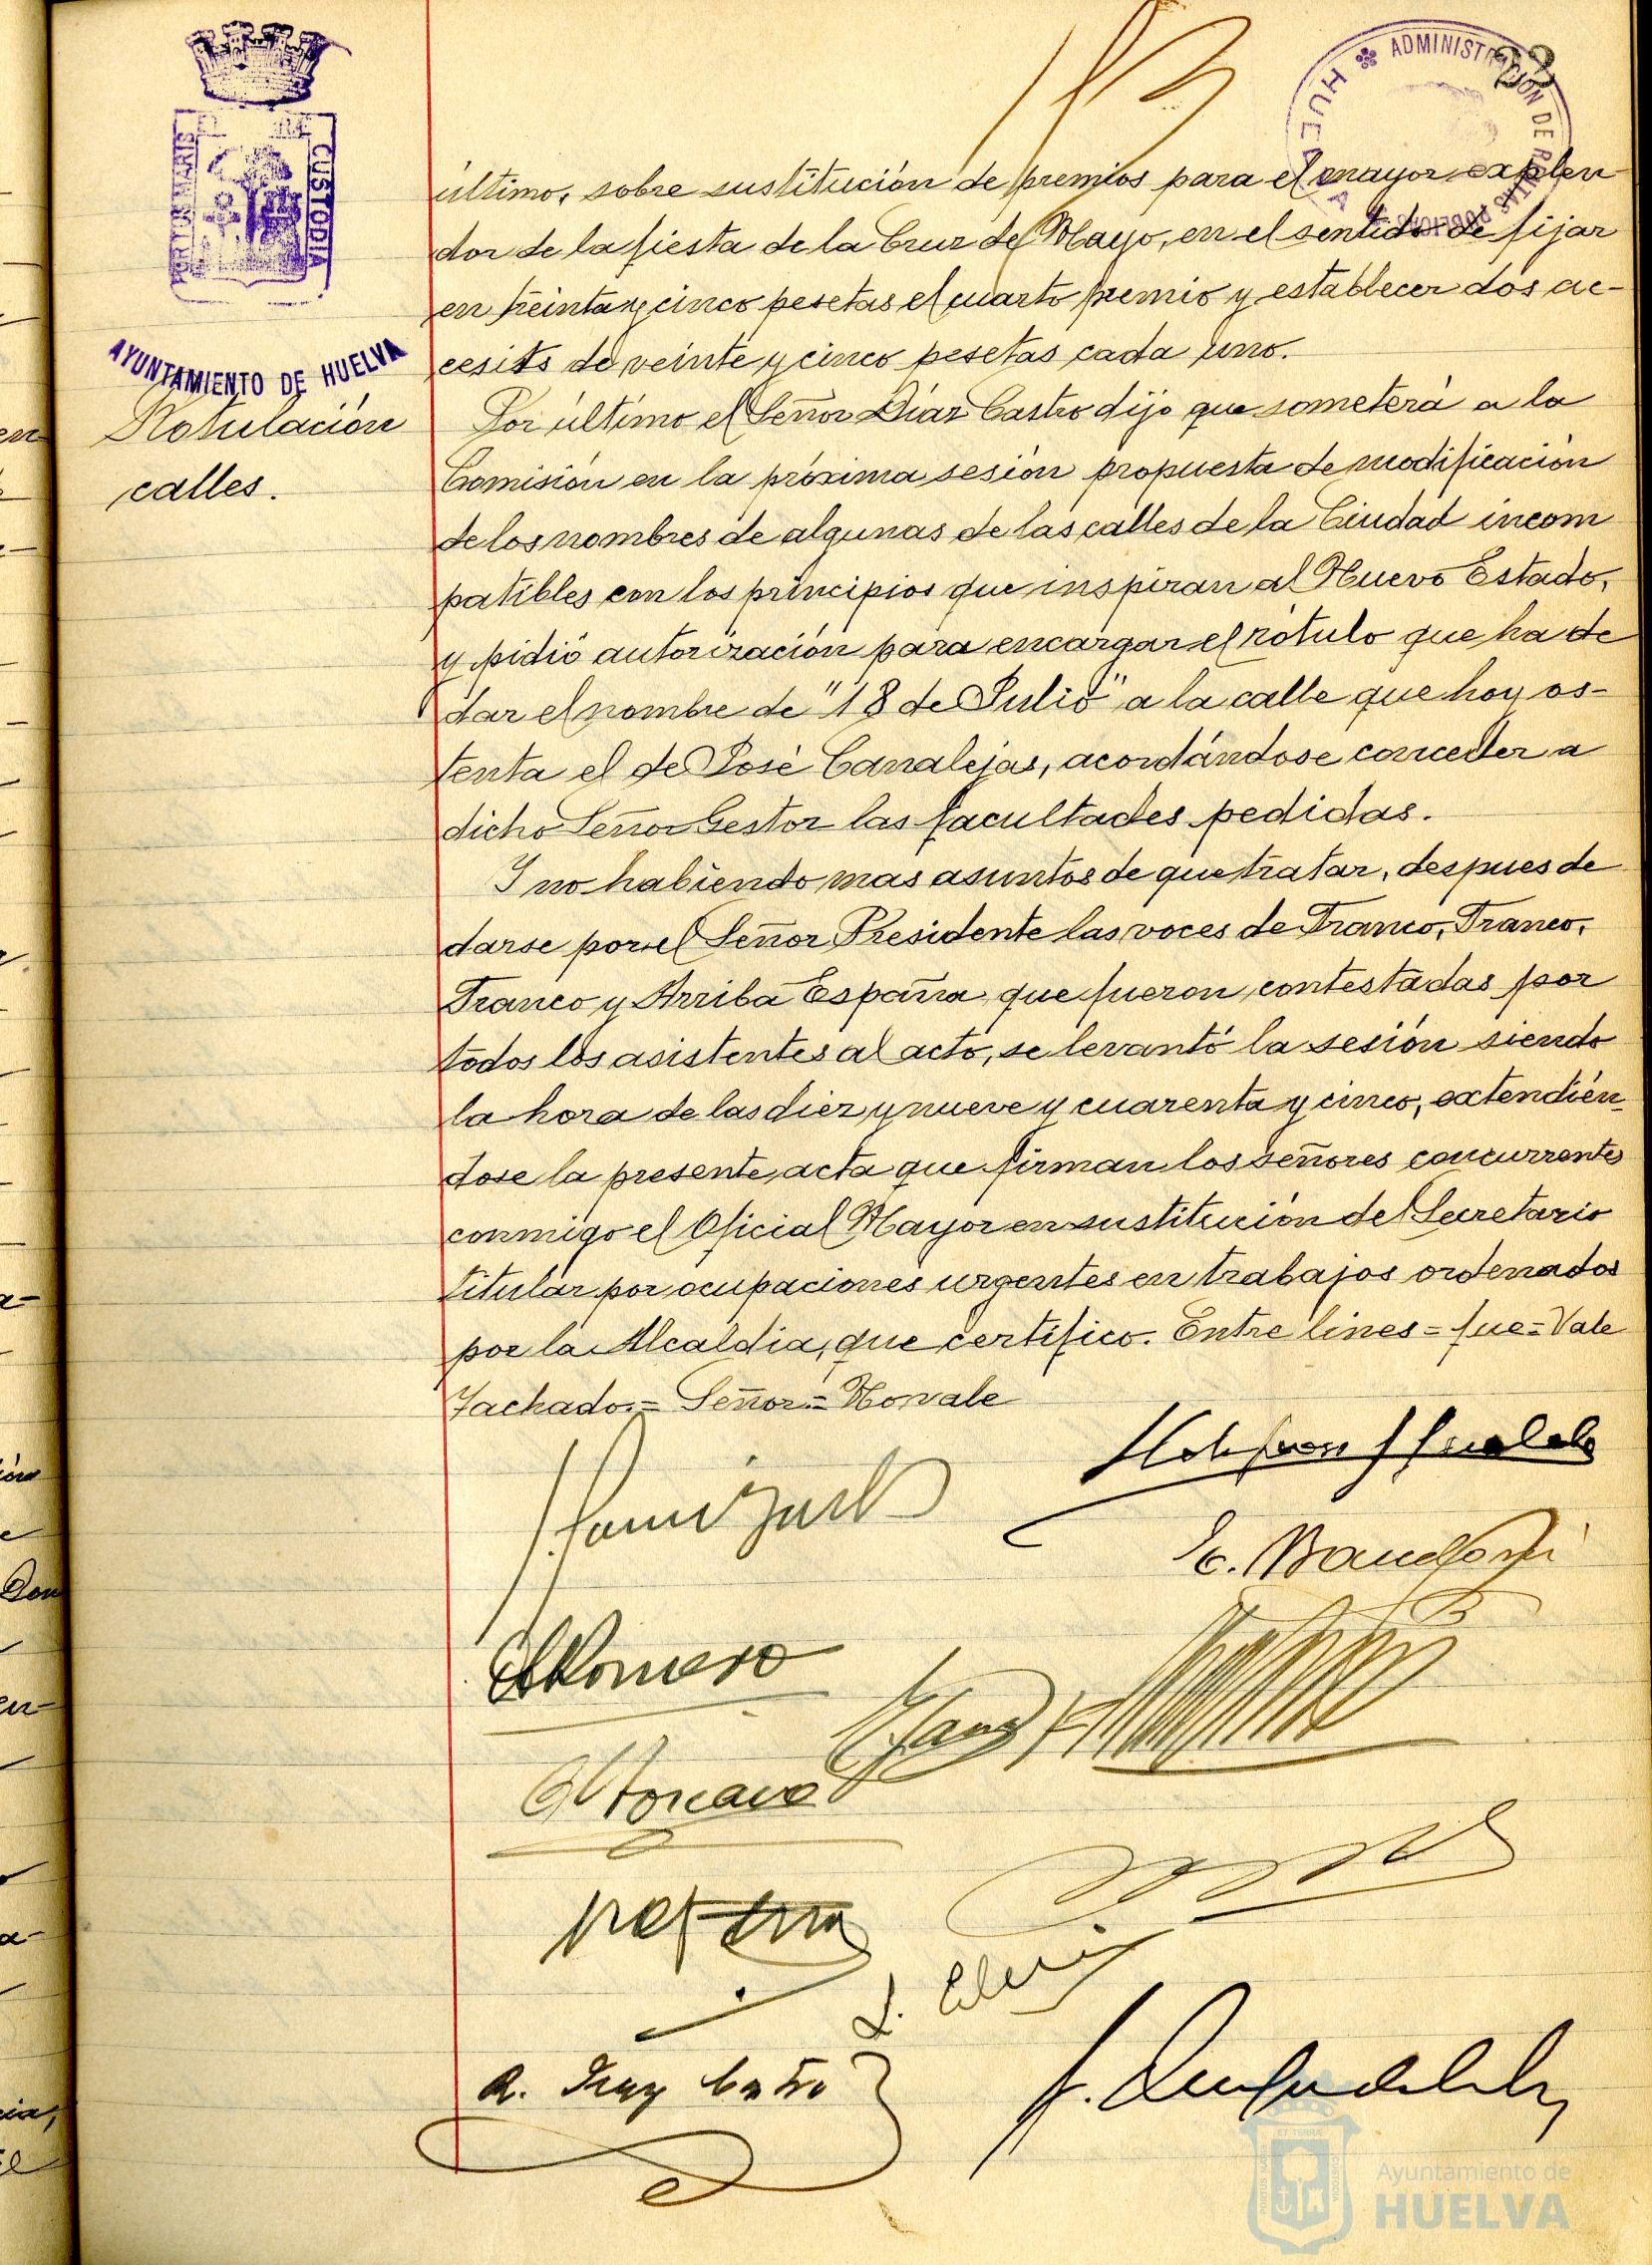 33
ADMINISTRACIÓN DE RENTAS PÚBLICAS
HUELVA
PORTUS MARIS
CUSTODIA
AYUNTAMIENTO DE HUELVA
Rotulación
calles.
último, sobre sustitución de premios para el mayor explen
dor de la fiesta de la Cruz de Mayo, en el sentido de fijar
en treinta y cinco pesetas el cuarto premio y establecer dos ac-
cesits de veinte y cinco pesetas cada uno.
Por último el Señor Díaz Castro dijo que someterá a la
Comisión en la próxima sesión propuesta de modificación
de los nombres de algunas de las calles de la Ciudad incom
patibles con los principios que inspiran al Nuevo Estado,
y pidió autorización para encargar el rótulo que ha de
dar el nombre de "18 de Julio" a la calle que hoy os-
tenta el de José Canalejas, acordándose conceder a
dicho Señor Gestor las facultades pedidas.
Y no habiendo mas asuntos de que tratar, despues de
darse por el Señor Presidente las voces de Franco, Franco,
Franco y Arriba España, que fueron contestadas por
todos los asistentes al acto, se levantó la sesión siendo
la hora de las diez y nueve y cuarenta y cinco, extendién
dose la presente acta que firman los señores concurrentes
conmigo el Oficial Mayor en sustitución del Secretario
titular por ocupaciones urgentes en trabajos ordenados
por la Alcaldia, que certifico. Entre lines = fue = Vale
Tachado. = Señor = No vale
Romero
R. Díaz Castro
Ayuntamiento de
HUELVA